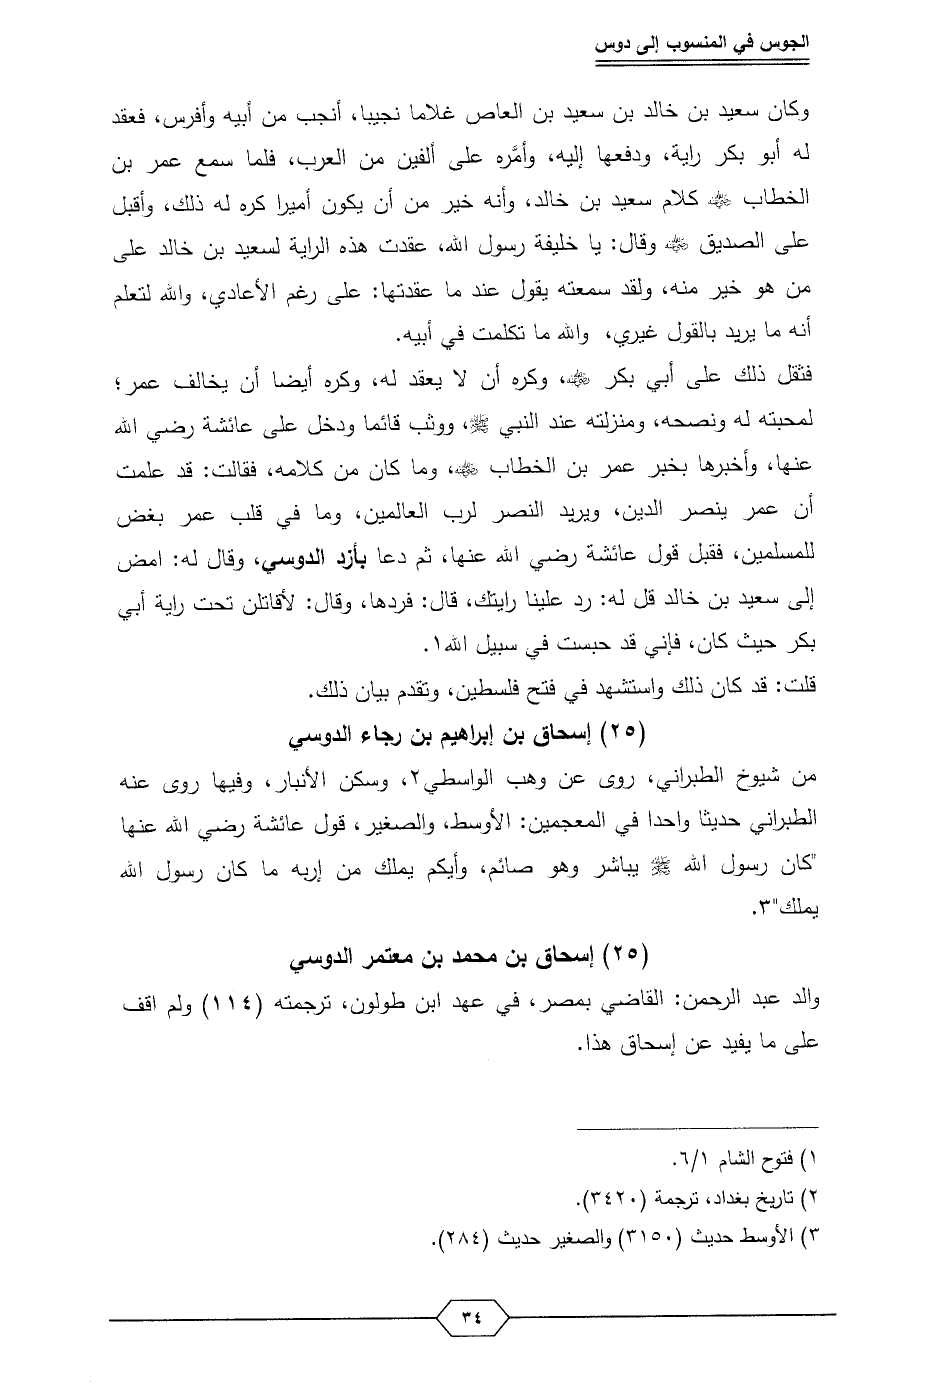 الجوس في المنسوب إلى دوس
وكان سعيد بن خالد بن سعيد بن العاص غلاما نجيبا، أنجب من أبيه وأفرس، فعقد
له أبو بكر راية، ودفعها إليه، وأمَّره على ألفين من العرب، فلما سمع عمر بن
الخطاب ﷺ كلام سعيد بن خالد، وأنه خير من أن يكون أميرا كره له ذلك، وأقبل
على الصديق ﷺ وقال: يا خليفة رسول الله، عقدت هذه الراية لسعيد بن خالد على
من هو خير منه، ولقد سمعته يقول عند ما عقدتها: على رغم الأعادي، والله لتعلم
أنه ما يريد بالقول غيري، والله ما تكلمت في أبيه.
فثقل ذلك على أبي بكر ﷺ، وكره أن لا يعقد له، وكره أيضا أن يخالف عمر؛
لمحبته له ونصحه، ومنزلته عند النبي ﷺ، ووثب قائما ودخل على عائشة رضي الله
عنها، وأخبرها بخبر عمر بن الخطاب ﷺ، وما كان من كلامه، فقالت: قد علمت
أن عمر ينصر الدين، ويريد النصر لرب العالمين، وما في قلب عمر بغض
للمسلمين، فقبل قول عائشة رضي الله عنها، ثم دعا بأزد الدوسي، وقال له: امض
إلى سعيد بن خالد قل له: رد علينا رايتك، قال: فردها، وقال: لأقاتلن تحت راية أبي
بكر حيث كان، فإني قد حبست في سبيل الله١.
قلت: قد كان ذلك واستشهد في فتح فلسطين، وتقدم بيان ذلك.
(٢٥) إسحاق بن إبراهيم بن رجاء الدوسي
من شيوخ الطبراني، روى عن وهب الواسطي٢، وسكن الأنبار، وفيها روى عنه
الطبراني حديثا واحدا في المعجمين: الأوسط، والصغير، قول عائشة رضي الله عنها
"كان رسول الله ﷺ يباشر وهو صائم، وأيكم يملك من إربه ما كان رسول الله
يملك"٣.
(٢٥) إسحاق بن محمد بن معتمر الدوسي
والد عبد الرحمن: القاضي بمصر، في عهد ابن طولون، ترجمته (١١٤) ولم اقف
على ما يفيد عن إسحاق هذا.
١) فتوح الشام ٦/١.
٢) تاريخ بغداد، ترجمة (٣٤٢٠).
٣) الأوسط حديث (٣١٥٠) والصغير حديث (٢٨٤).
٣٤